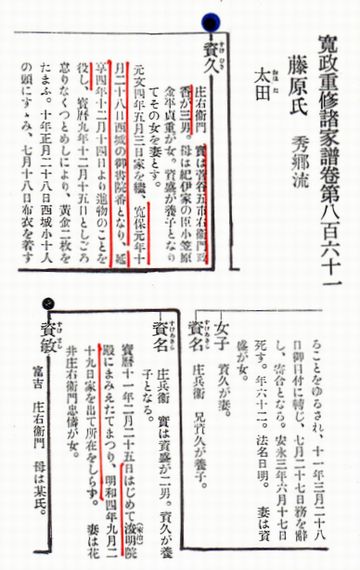 寬政重修諸家譜卷第八百六十一
藤原氏 秀郷流
太田
おほた
資久
すけひさ
庄右衛門 實は菅谷五市右衛門政
香が三男。母は紀伊家の臣小笠原
金平貞重が女。資盛が養子となり
てその女を妻とす。
元文四年五月三日家を繼、寬保元年十
月二十八日西城の御書院番となり、延
享四年十二月十四日より進物のことを
役し、寶暦九年十二月十五日としごろ
怠りなくつとめしにより、黃金二枚を
たまふ。十年正月二十八日西城小十人
の頭にすゝみ、七月十八日布衣を着す
ることをゆるされ、十一年三月二十八
日御目付に轉じ、七月二十七日務を辭
し、寄合となる。安永三年六月十七日
死す。年六十二。法名日明。 妻は資
盛が女。
女子 資久が妻。
資名 庄兵衞 兄資久が養子。
すけあきら
資名
すけあきら
庄兵衞 實は資盛が二男。資久が養
子となる。
寶暦十一年二月二十五日はじめて浚明院
(家治)
殿にまみえたてまつり、明和四年九月二
十九日家を出て所在をしらず。 妻は花
井庄右衛門忠儔が女。
資敏
すけとし
富吉 庄右衛門 母は某氏。